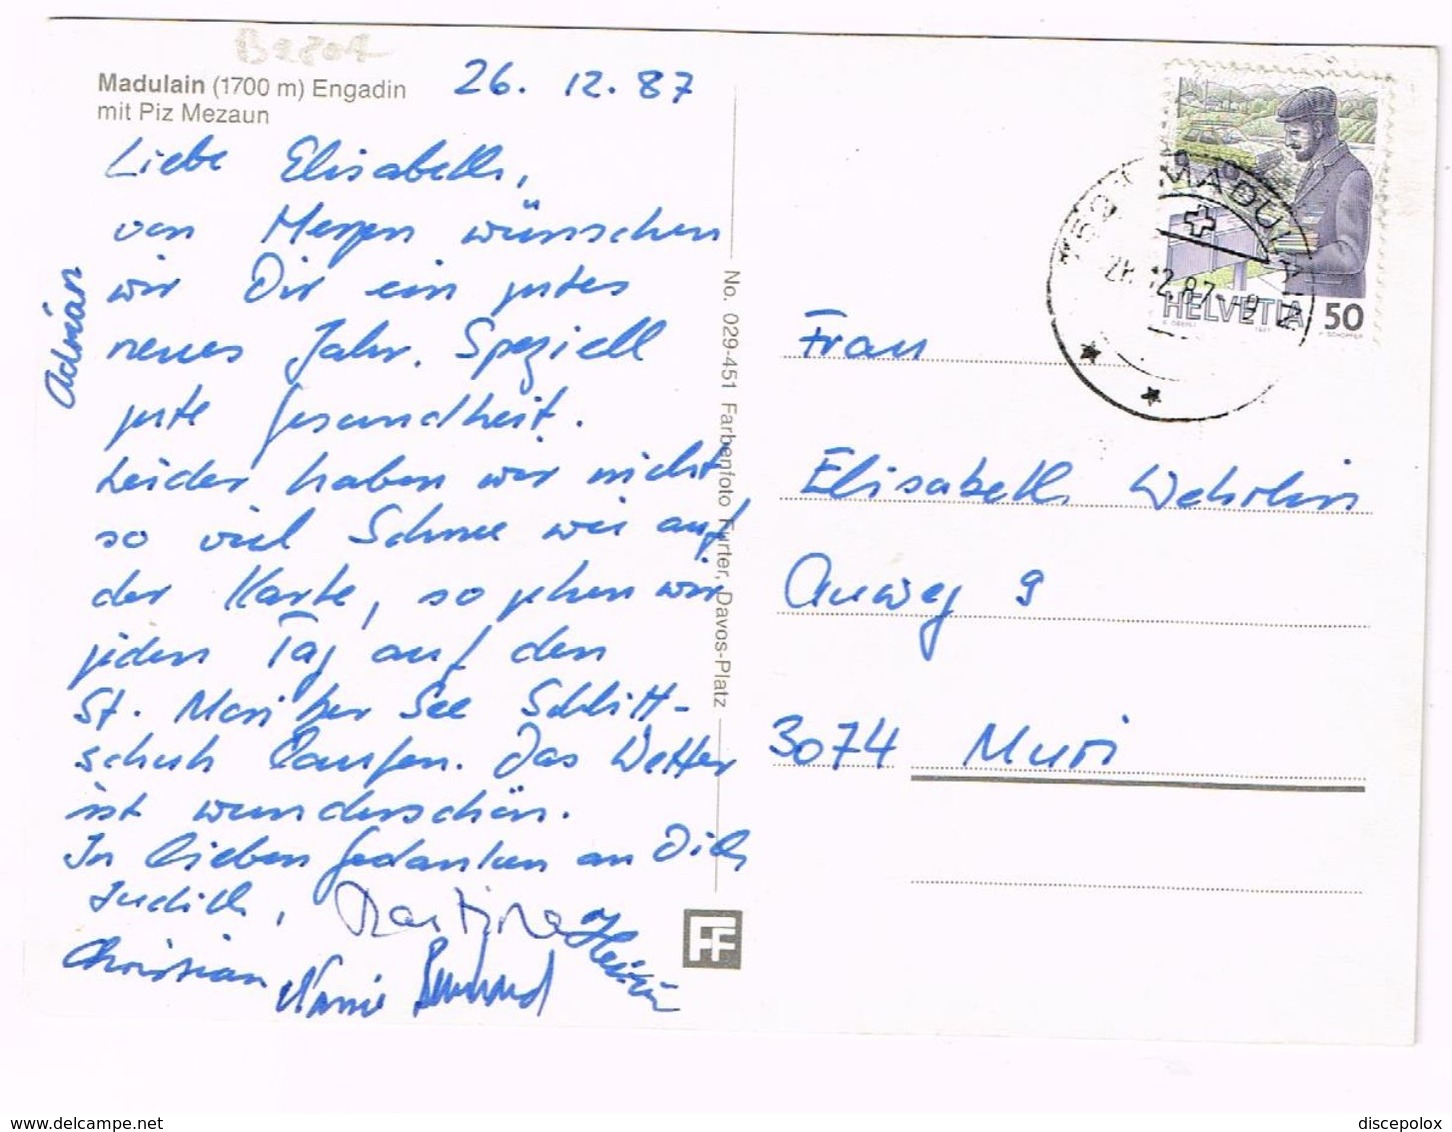 Madulain (1700 m) Engadin
mit Piz Mezaun
26. 12. 87
Liebe Elisabeth,
von Herzen wünschen
wir Dir ein gutes
neues Jahr. Speziell
gute Gesundheit.
Leider haben wir nicht
so viel Schnee wie auf
der Karte, so gehen wir
jeden Tag auf den
St. Moritzer See Schlitt-
schuh laufen. Das Wetter
ist wunderschön.
In lieben Gedanken an Dich
Judith, Martina
Christian Bernhard
Adrian
No. 029-451 Farbenfoto Furter, Davos-Platz
FF
HELVETIA 50
Frau
Elisabeth Wehrlin
Auweg 9
3074 Muri
delcampe.net
discepolox